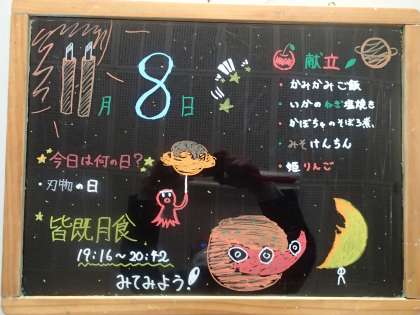 11月8日
献立
・かみかみご飯
・いかのねぎ塩焼き
・かぼちゃのそぼろ煮
・みそけんちん
・姫りんご
今日は何の日?
・刃物の日
皆既月食
19:16〜20:42
みてみよう!